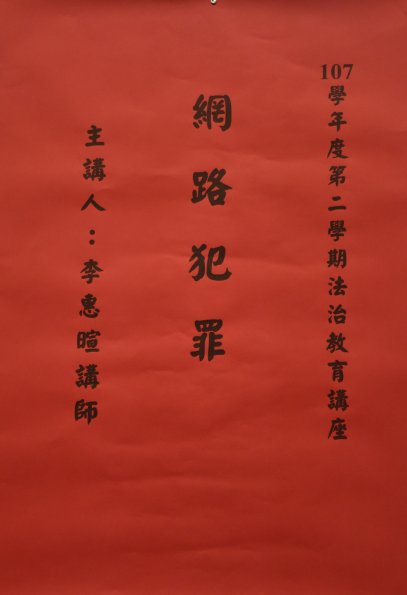 107學年度第二學期法治教育講座
網路犯罪
主講人：李惠暄講師